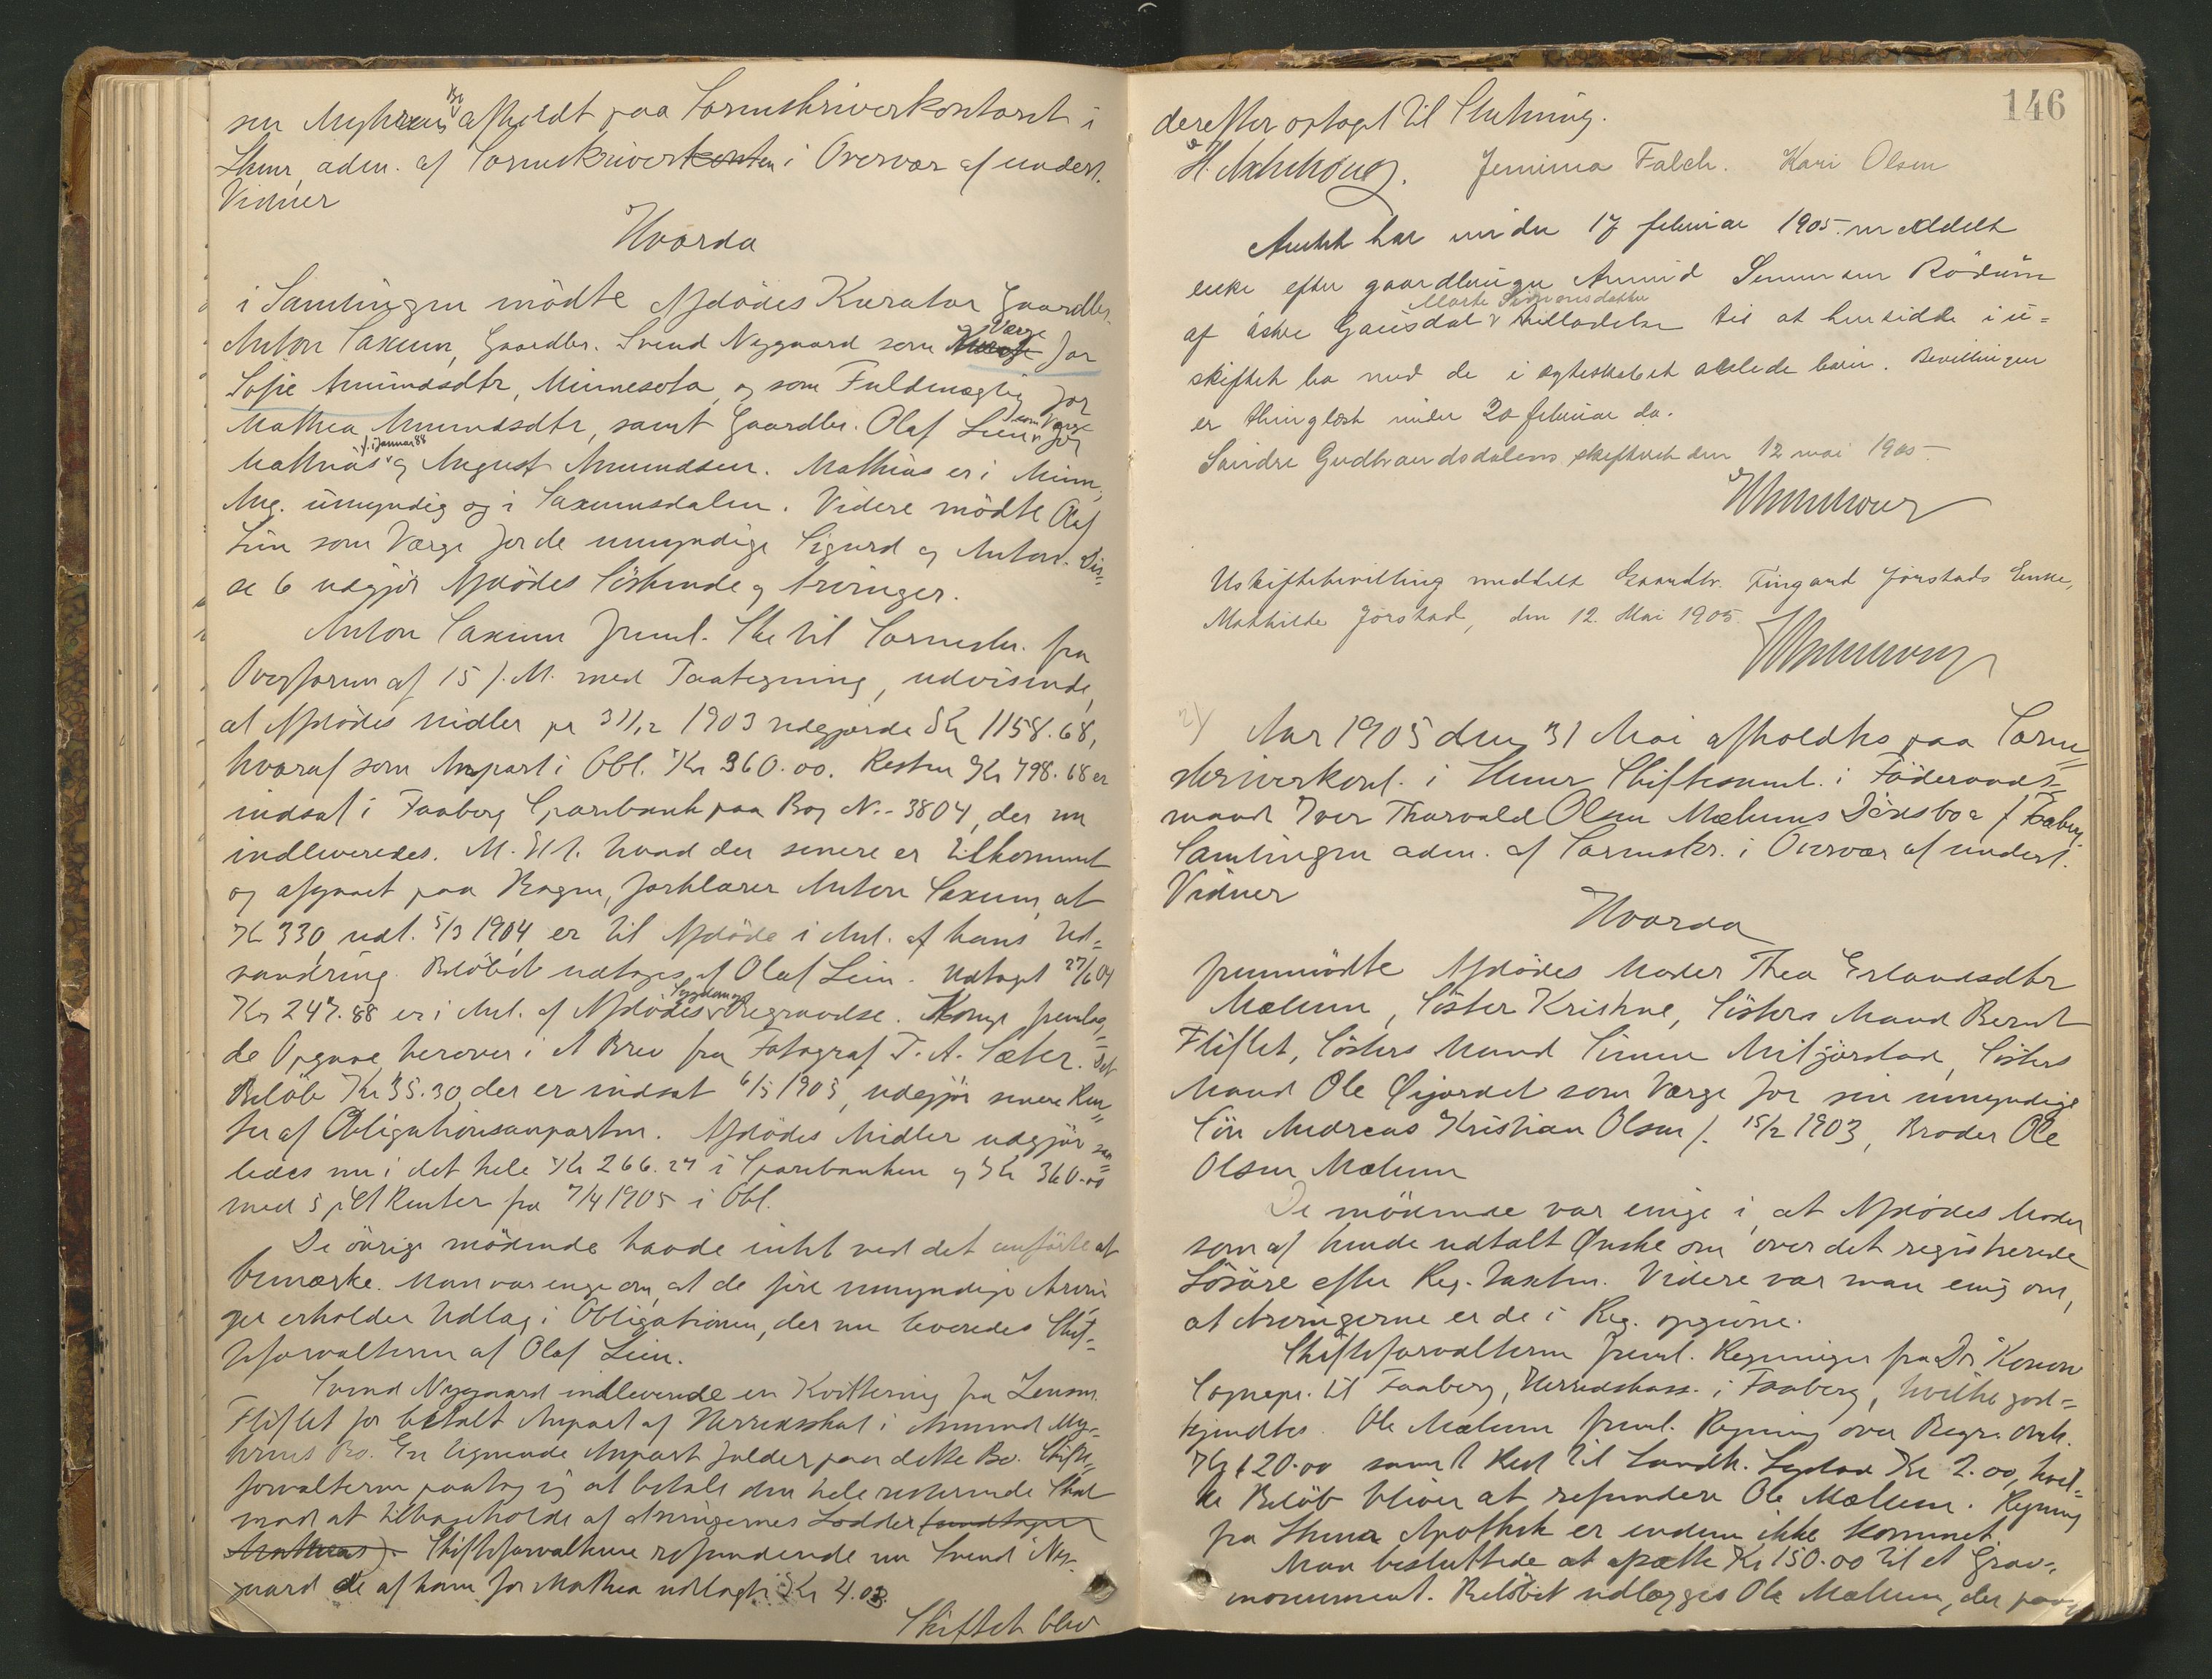 sen Myhrens Bo afholdt paa Sorenskriverkontoret i
Lhmr, adm. af Sorenskriverkonten i Overvær af undert.
Vidner
Hvorda
i Samlingen mödte Afdödes Kurator Gaardbr.
Anton Saxum, Gaardbr. Svend Nygaard som Værge for
Sofie Amundsdtr, Minnesota, og som Fuldmægtig for
Mathea Amundsdtr, samt Gaardbr. Olaf Lien som Værge for
Mathias f. i Januar 88 og August Amundsen. Mathias er i Minn.,
Aug. umyndig og i Saxumsdalen. Videre mödte Olaf
Lien som Værge for de umyndige Sigurd og Anton. Dis=
se 6 udgjör Afdödes Söskende og Arvinger.
Anton Saxum freml. Skr. til Sorenskr. fra
Overform. af 15 f. M. med Paategning, udvisende,
at Afdödes Midler pr 31/12 1903 udgjorde Kr 1158.68,
hvoraf som Anpart i Obl. Kr 360.00. Resten Kr 798.68 er
indsat i Faaberg Sparebank paa Bog N.. 3804, der nu
indleveredes. M. H. t. hvad der senere er tilkommet
og afgaaet paa Bogen, forklarer Anton Saxum, at
Kr 330, udt. 5/3 1904 er til Afdöde i Anl. af hans Ud=
vandring. Belöbet udtoges af Olaf Lien. Udtaget 27/6 04
Kr 247.88 er i Anl. af Afdödes Sygdom og Begravelse. Komp. fremlag=
de Opgave herover i et Brev fra Fotograf T. A. Sæter. Det
Belöb Kr 35.30, der er indsat 6/5 1905, udgjör senere Ren=
ter af Obligationsanparten. Afdödes Midler udgjör saa=
ledes nu i det hele Kr 266.27 i Sparebanken og Kr 360.00
med 5 pCt Renter fra 7/4 1905 i Obl.
De övrige mödende havde intet ved det anförte at
bemærke. Man var enige om, at de fire umyndige Arvin
ger erholder Udlæg i Obligationen, der nu leveredes Skif=
teforvalteren af Olaf Lien.
Svend Nygaard indleverede en Kvittering fra Lensm.
Fliflet for betalt Anpart af Herredsskat i Amund My=
hrens Bo. En lignende Anpart falder paa dette Bo. Skifte=
forvalteren paatog sig at betale den hele resterende Skat
mod at tilbageholde af Arvingernes Lodder (undtagen
Mathias). Skifteforvalteren refunderede nu Svend Ny=
gaard de af ham for Mathea udlagte Kr 4.03.
Skiftet blev
146
derefter optaget til Slutning.
Jemima Falch. Kari Olsen
Amtet har under 17 februar 1905 meddelt
enke efter gaardbruger Amund Simensen Rödum
af östre Gausdal Marte Simensdatter tilladelse til at hensidde i u=
skiftet bo med de i egteskabet avlede barn. Bevillingen
er thinglæst under 20 februar da.
Söndre Gudbrandsdalens skifteret den 12 mai 1905
Uskiftebevilling meddelt Gaardbr. Fingard Jörstads Enke,
Mathilde Jörstad, den 12. Mai 1905.
Aar 1905 den 31 Mai afholdtes paa Soren=
skriverkont. i Lhmr Skiftesaml. i Föderaads=
mand Iver Thorvald Olsen Mælums Dödsbo af Faaberg.
Samlingen adm. af Sorenskr. i Overvær af undert.
Vidner
Hvorda
fremmödte Afdödes Moder Thea Erlandsdtr
Mælum, Söster Kristine, Sösters Mand Bernt
Fliflet, Sösters Mand Simen Mitjördet, Sösters
Mand Ole Öijordet som Værge for sin umyndige
Sön Andreas Kristian Olsen f. 15/2 1903, Broder Ole
Olsen Mælum
De mödende var enige i, at Afdödes Moder
som af hende udtalt Ønske om over det registrerede
Lösöre efter Reg. Taxten. Videre var man enig om,
at Arvingerne er de i Reg. opgivne.
Skifteforvalteren freml. Regninger fra Dr Konow
Sognepr. til Faaberg, Herredskass. i Faaberg, hvilke god=
kjendtes. Ole Mælum freml. Regning over Begr. Omk.
Kr 120.00 samt Rest til Landh. Kr 2.00, hvil=
ke Belöb bliver at refundere Ole Mælum. Regning
fra Lhmr Apothek er endnu ikke kommet.
Man besluttede at afsætte Kr 150.00 til et Grav=
monument. Belöbet udlægges Ole Mælum, der paa=